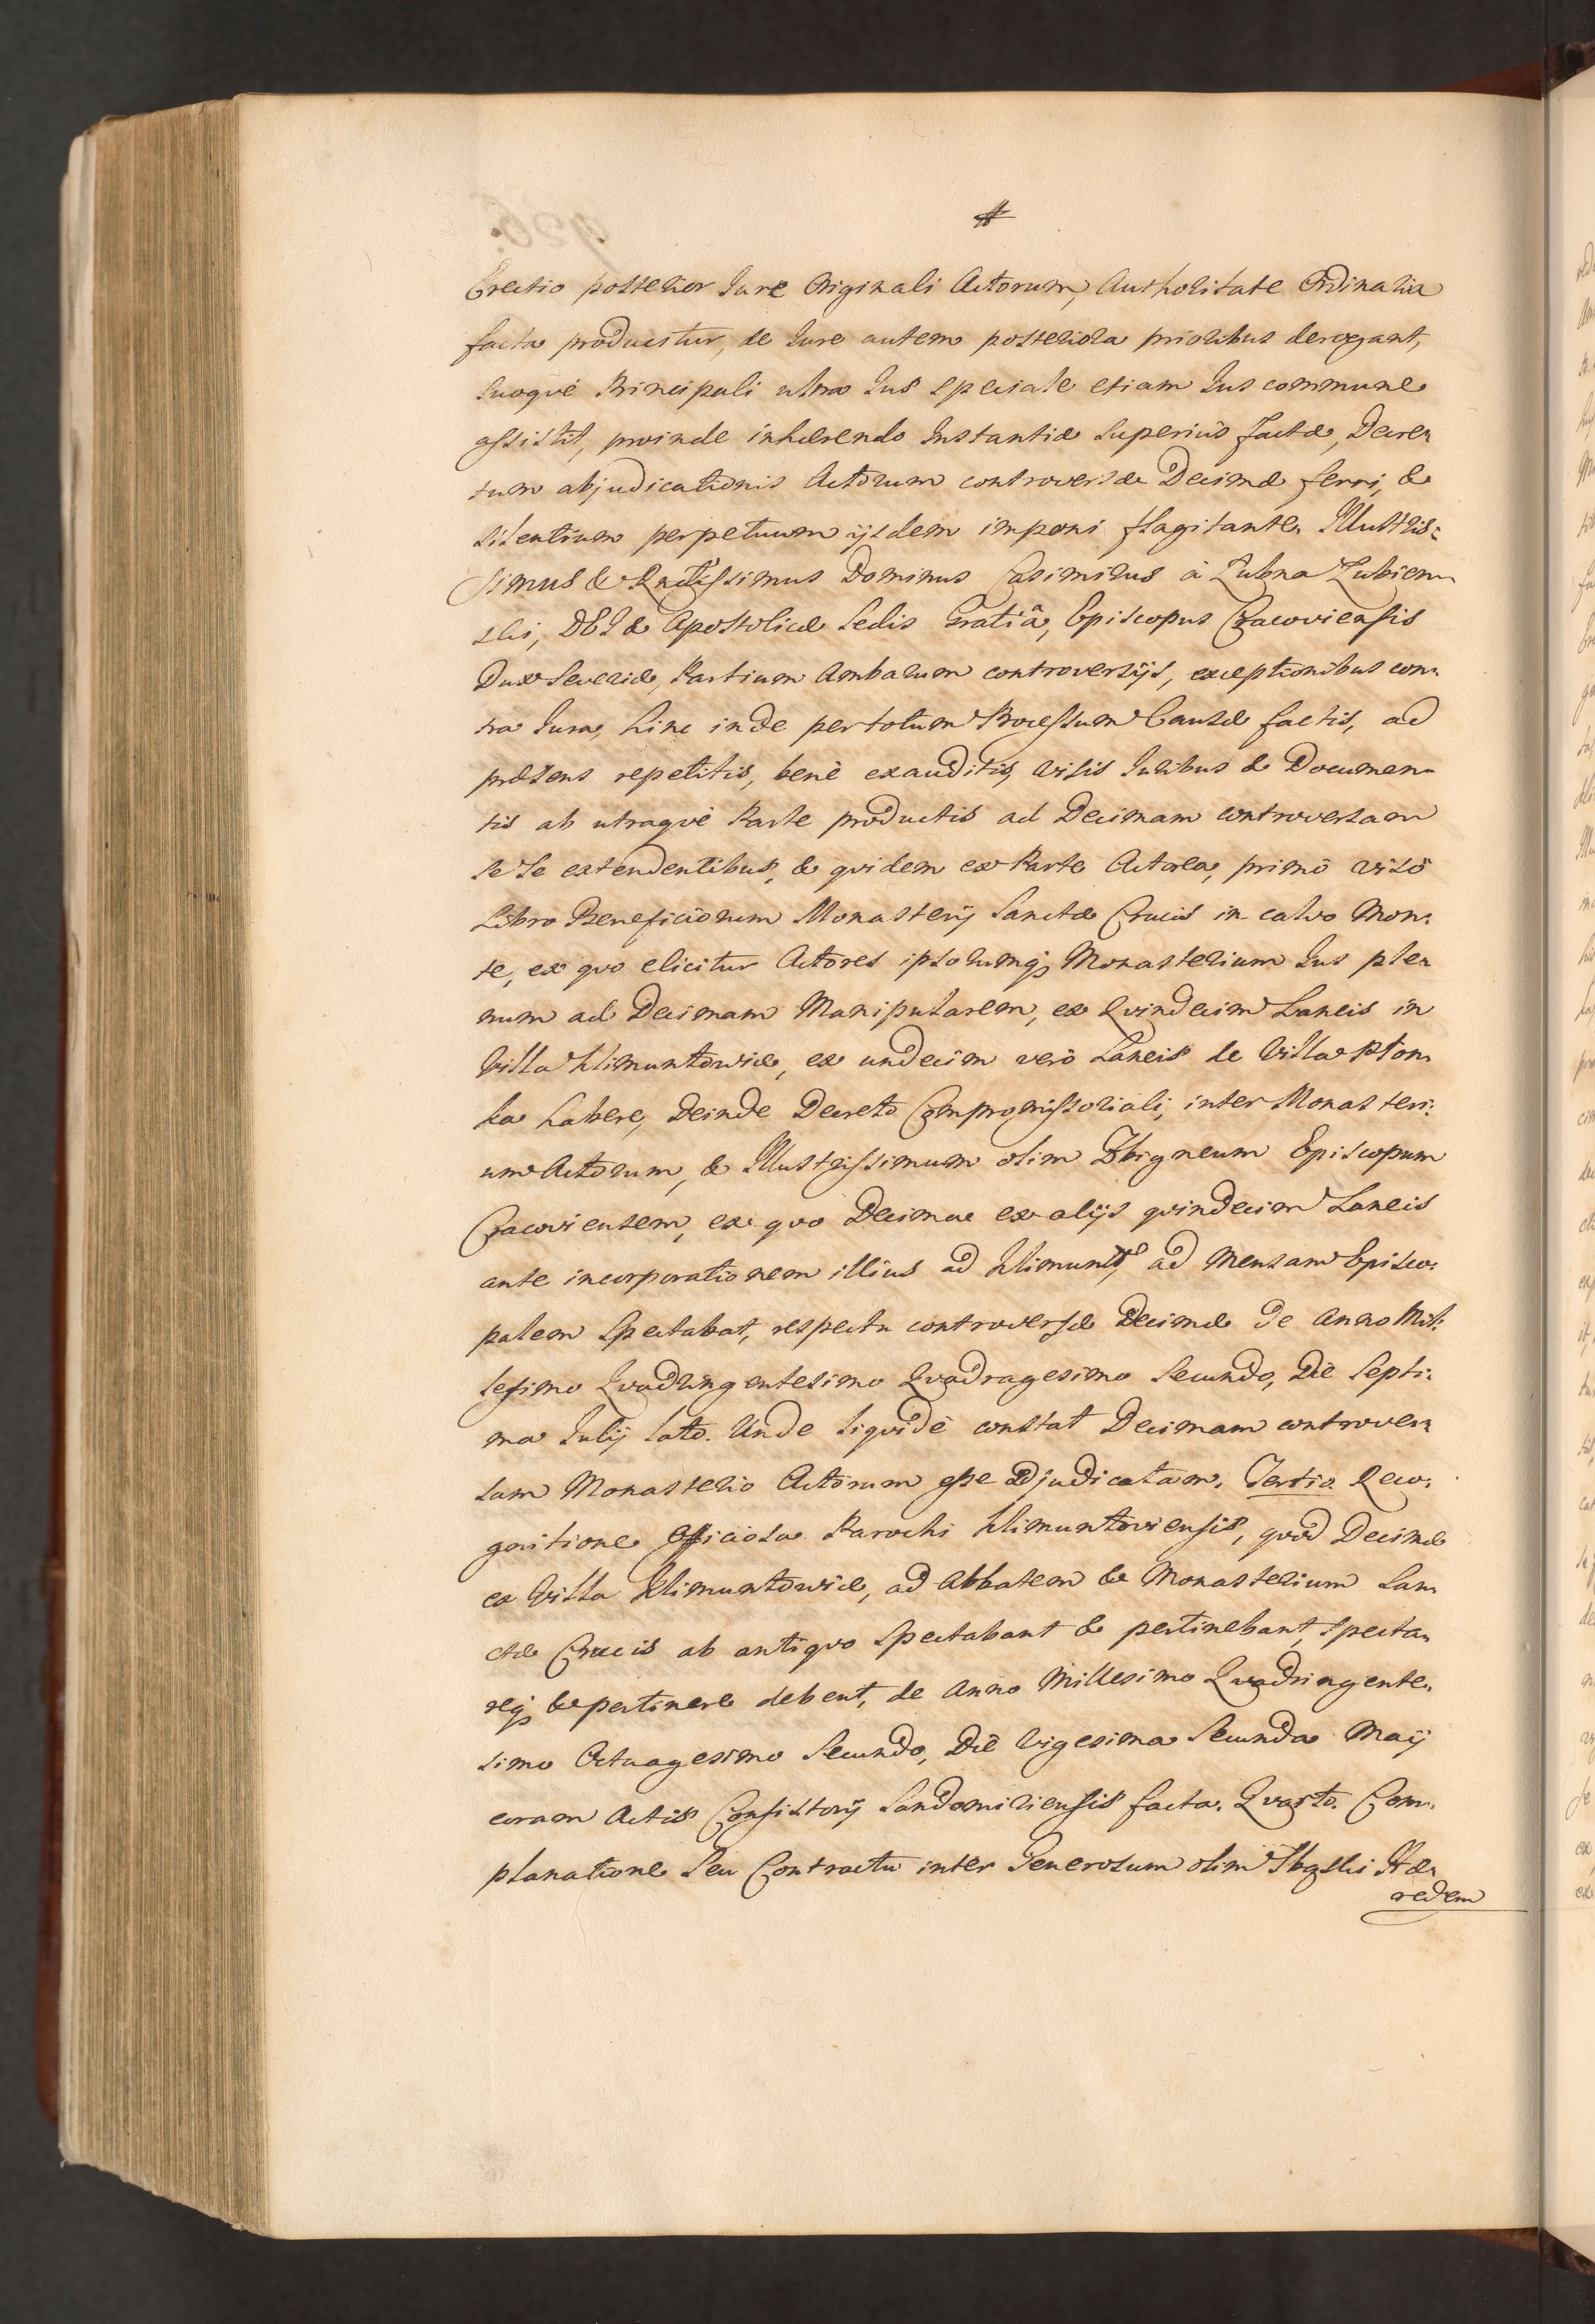 Erectio posterior Jure Originali Actorum, Authoritate Ordinaria
facta producitur, de Jure autem posteriora prioribus derogant,
suoque Principali ultra Jus speciale etiam Jus commune
assistit, proinde inhærendo Instantiæ superius factæ, Decre-
tum abjudicationis Actorum controversæ Decimæ ferri, &
silentium perpetuum ijsdem imponi flagitante. Illustris-
simus & Rndissimus Dominus Casimirus à Łubna Łubien-
ski, DEI & Apostolicæ Sedis Gratiâ, Episcopus Cracoviensis
Dux Severiæ, Partium Ambarum controversijs, exceptionibus con-
tra Jura, hinc inde per totum Processum Causæ factis, ad
præsens repetitis, benè exauditis, visis Juribus & Documen-
tis ab utraque Parte productis ad Decimam controversam
se se extendentibus, & quidem ex Parte Actorea, primò visô
Libro Beneficiorum Monasterij Sanctæ Crucis in calvo Mon-
te, ex quo elicitur Actores ipsorumq; Monasterium Jus ple-
num ad Decimam Manipularem, ex Quindecim Laneis in
Villa Klimuntowice, ex undecim verò Laneis de Villa Płon-
ka habere, Deinde Decreto Compromissoriali, inter Monasteri-
um Actorum, & Illustrissimum olim Zbigneum Episcopum
Cracoviensem, ex quo Decimæ ex alijs quindecim Laneis
ante incorporationem illius ad Klimunt, ad Mensam Episco-
palem spectabat, respectu controversæ Decimæ de Anno Mil-
lesimo Quadringentesimo Quadragesimo Secundo, Die Septi-
ma Julij lato. Unde liquidè constat Decimam controver-
sam Monasterio Actorum esse adjudicatam. Tertio Reco-
gnitione Officiosa Parochi Klimuntoviensis, quod Decimæ
ex Villa Klimuntowice, ad Abbatem & Monasterium San-
ctæ Crucis ab antiquo spectabant & pertinebant, specta-
req; & pertinere debent, de Anno Millesimo Quadringente-
simo Octuagesimo Secundo, Die Vigesima Secunda Maij
coram Actis Consistorij Sandomiriensis facta. Quarto. Com-
planatione seu Contractu inter Generosum olim Hæ-
redem